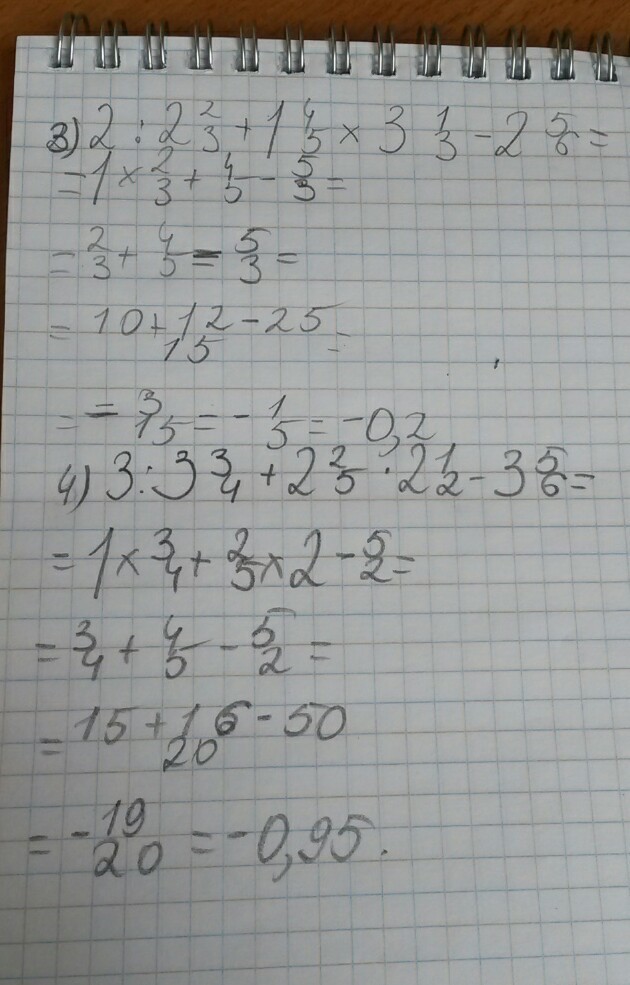 3) 2 : 2 2/3 + 1 4/5 × 3 1/3 - 2 5/6 =
= 1 × 2/3 + 4/5 - 5/3 =
= 2/3 + 4/5 - 5/3 =
= 10+12-25/15 =
= - 3/15 = - 1/5 = -0,2
4) 3 : 3 3/4 + 2 2/5 · 2 1/2 - 3 5/6 =
= 1 × 3/4 + 2/5 × 2 - 5/2 =
= 3/4 + 4/5 - 5/2 =
= 15+16-50/20
= - 19/20 = -0,95.